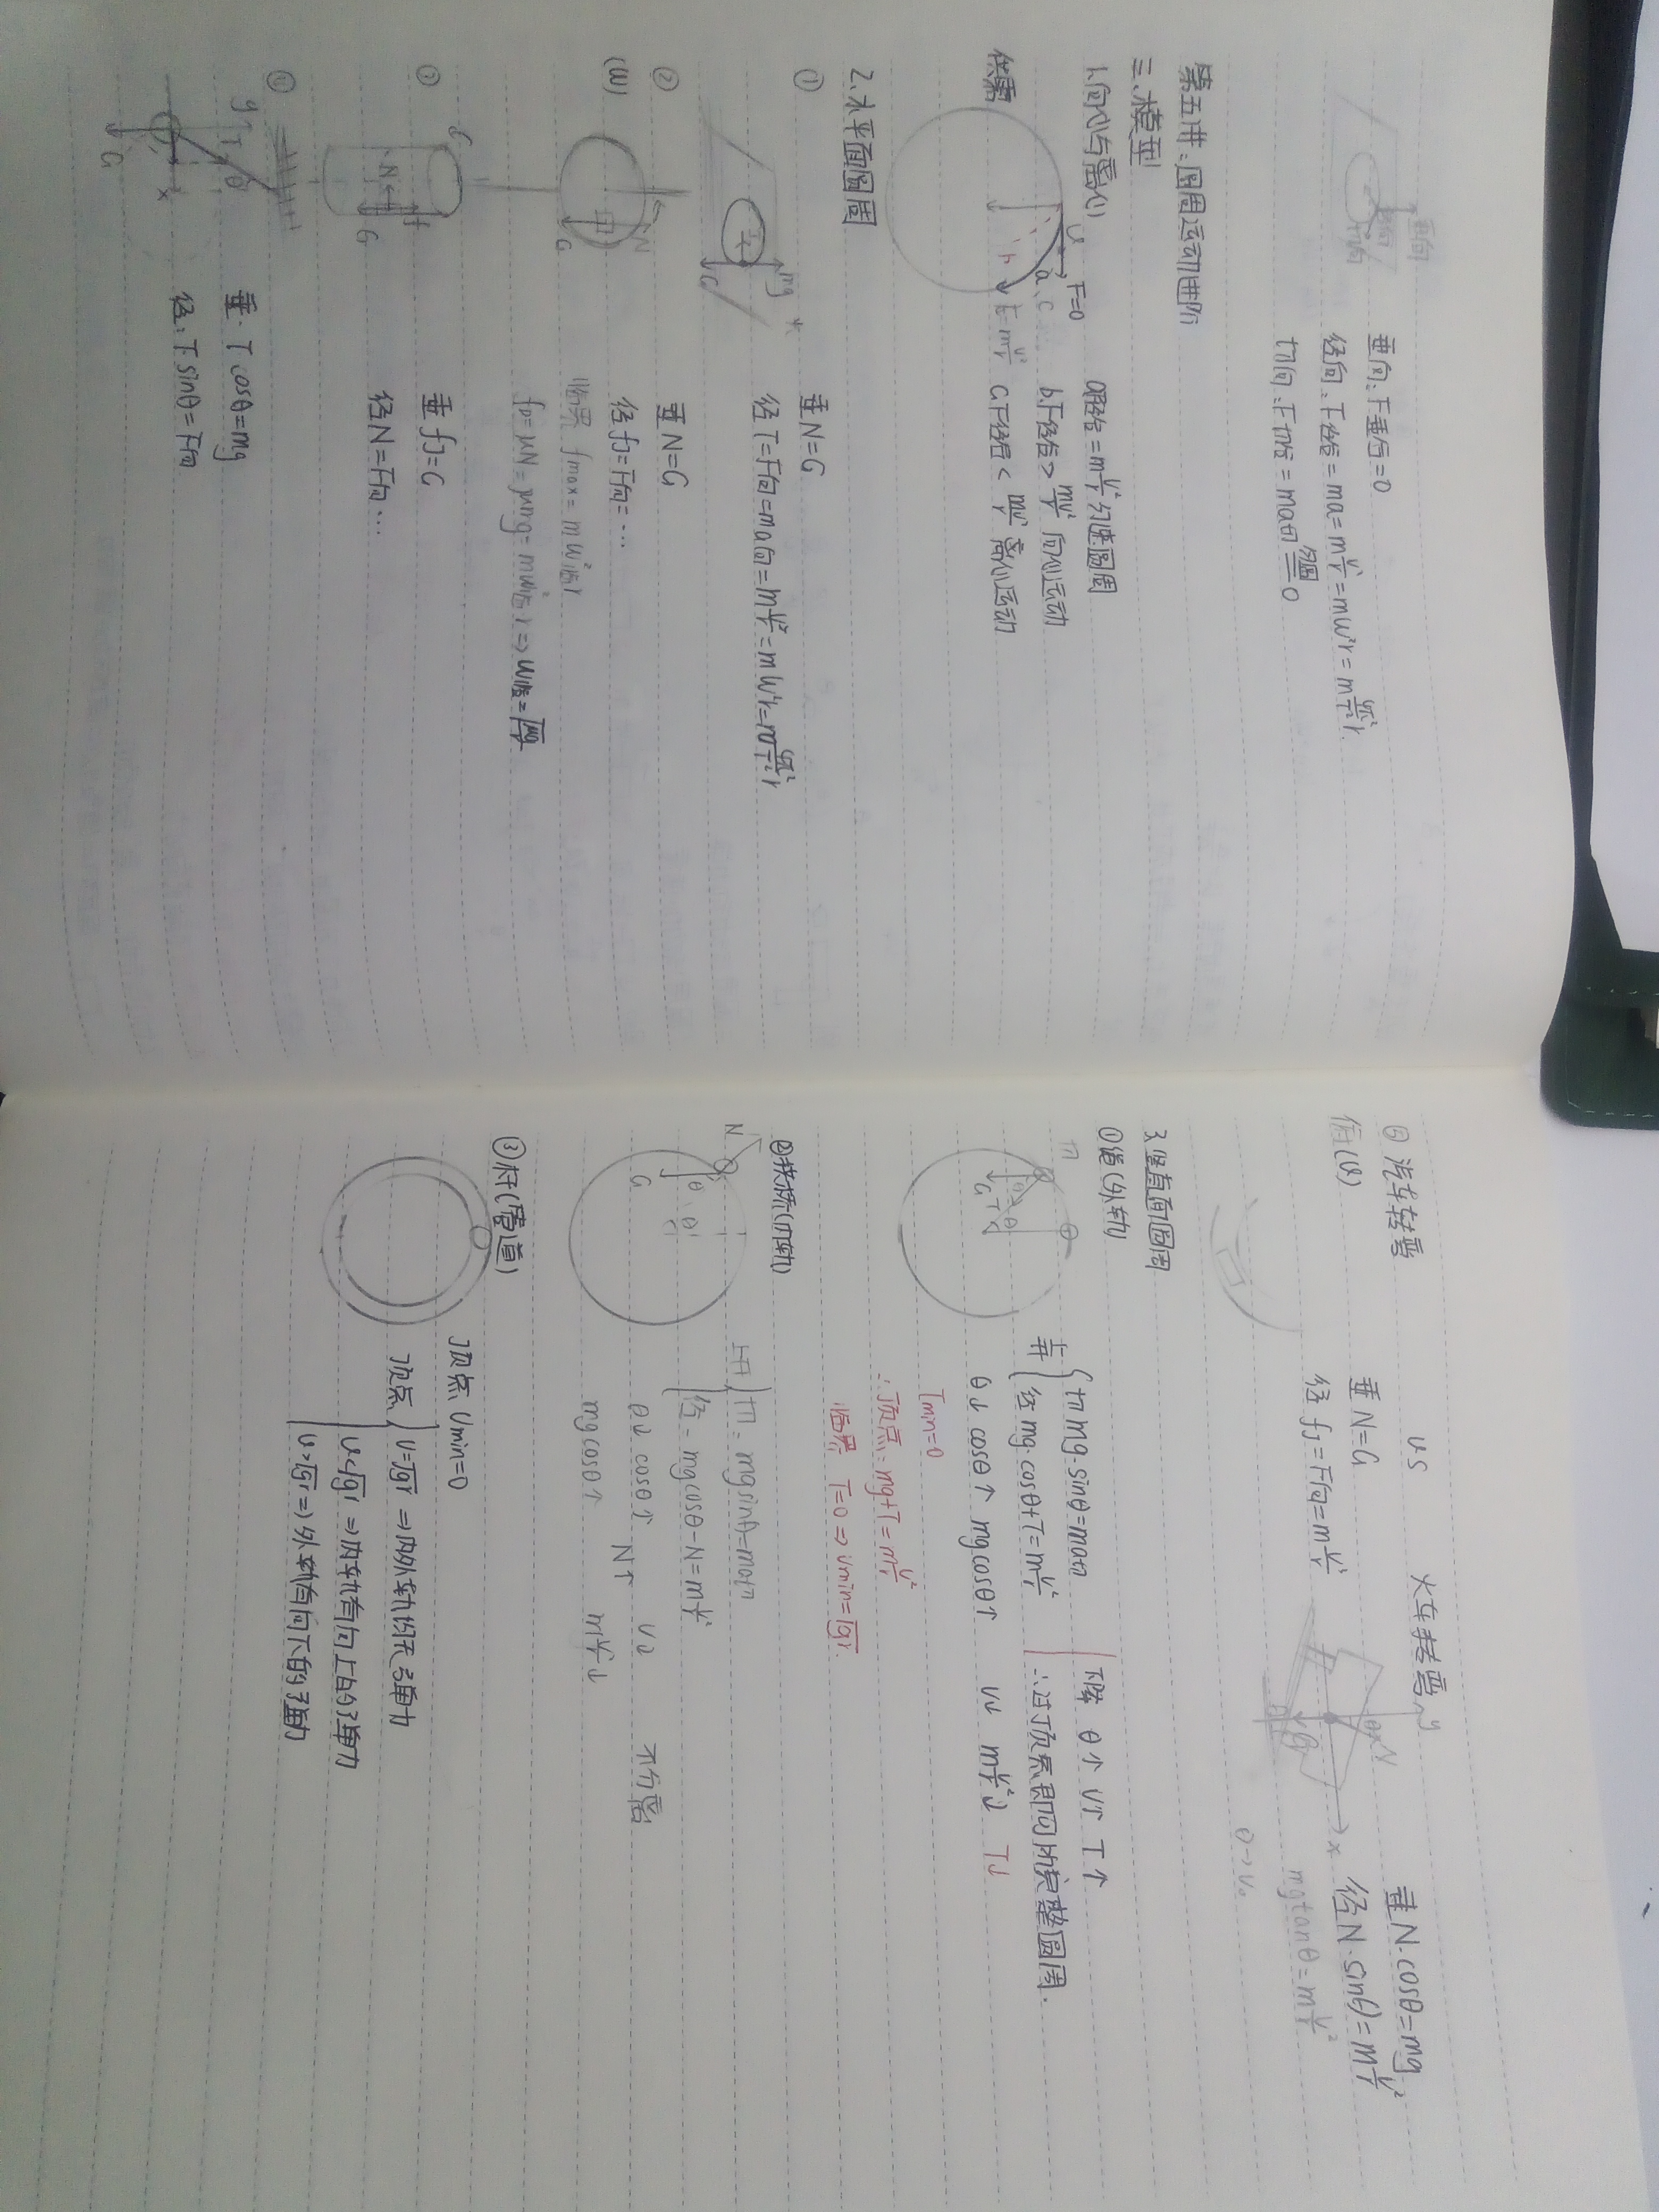 垂向
径向
切向
垂向:F垂合=0
径向:F径合=ma=m\frac{v²}{r}=mω²r=m\frac{4π²}{T²}r.
切向:F切合=ma切\overset{匀圆}{=}0
第五讲:圆周运动进阶
三.模型
1.向心与离心
供需
v F=0
a、c
r
F=m\frac{v²}{r}
a.F径合=m\frac{v²}{r} 匀速圆周
b.F径合>\frac{mv²}{r} 向心运动
c.F径合<\frac{mv²}{r} 离心运动
2.水平面圆周
①
mg
T
G
垂N=G
径T=F向=ma向=m\frac{v²}{r}=mω²r=m\frac{4π²}{T²}r
②
(ω)
N
G
垂N=G
径f=F向=…
临界 fmax=mω²临r
fm=μN=μmg=mω²临·r⇒ω临=\sqrt{\frac{μg}{r}}
③
f
N
G
垂 fj=G
径N=F向…
④
y
T
θ
x
G
垂:Tcosθ=mg
径:T·sinθ=F向
⑤汽车转弯 vs 火车转弯
俯(v)
垂N=G
径 fj=F向=m\frac{v²}{r}
y
θ
N
x
垂N·cosθ=mg
径N·sinθ=m\frac{v²}{r}
mgtanθ=m\frac{v²}{r}
θ→v₀
3.竖直面圆周
①绳(外轨)
切
θ
G T
升{切mg·sinθ=ma切
径mg·cosθ+T=m\frac{v²}{r}
θ↓ cosθ↑ mgcosθ↑ v↓ m\frac{v²}{r}↓ T↓
下降 θ↑ v↑ T↑
∴过顶点即可完整圆周.
Tmin=0
∴顶点:mg+T=m\frac{v²}{r}
临界 T=0⇒vmin=\sqrt{gr}.
②拱桥(内轨)
N
θ θ
G
上升{切:mgsinθ=ma切
径:mgcosθ-N=m\frac{v²}{r}
θ↓ cosθ↑ N↑ v↓ 不分离
mgcosθ↑ m\frac{v²}{r}↓
③杆(管道)
顶点 vmin=0
顶点{v=\sqrt{gr}⇒内外轨均无弹力
v<\sqrt{gr}⇒内轨有向上的弹力
v>\sqrt{gr}⇒外轨有向下的弹力